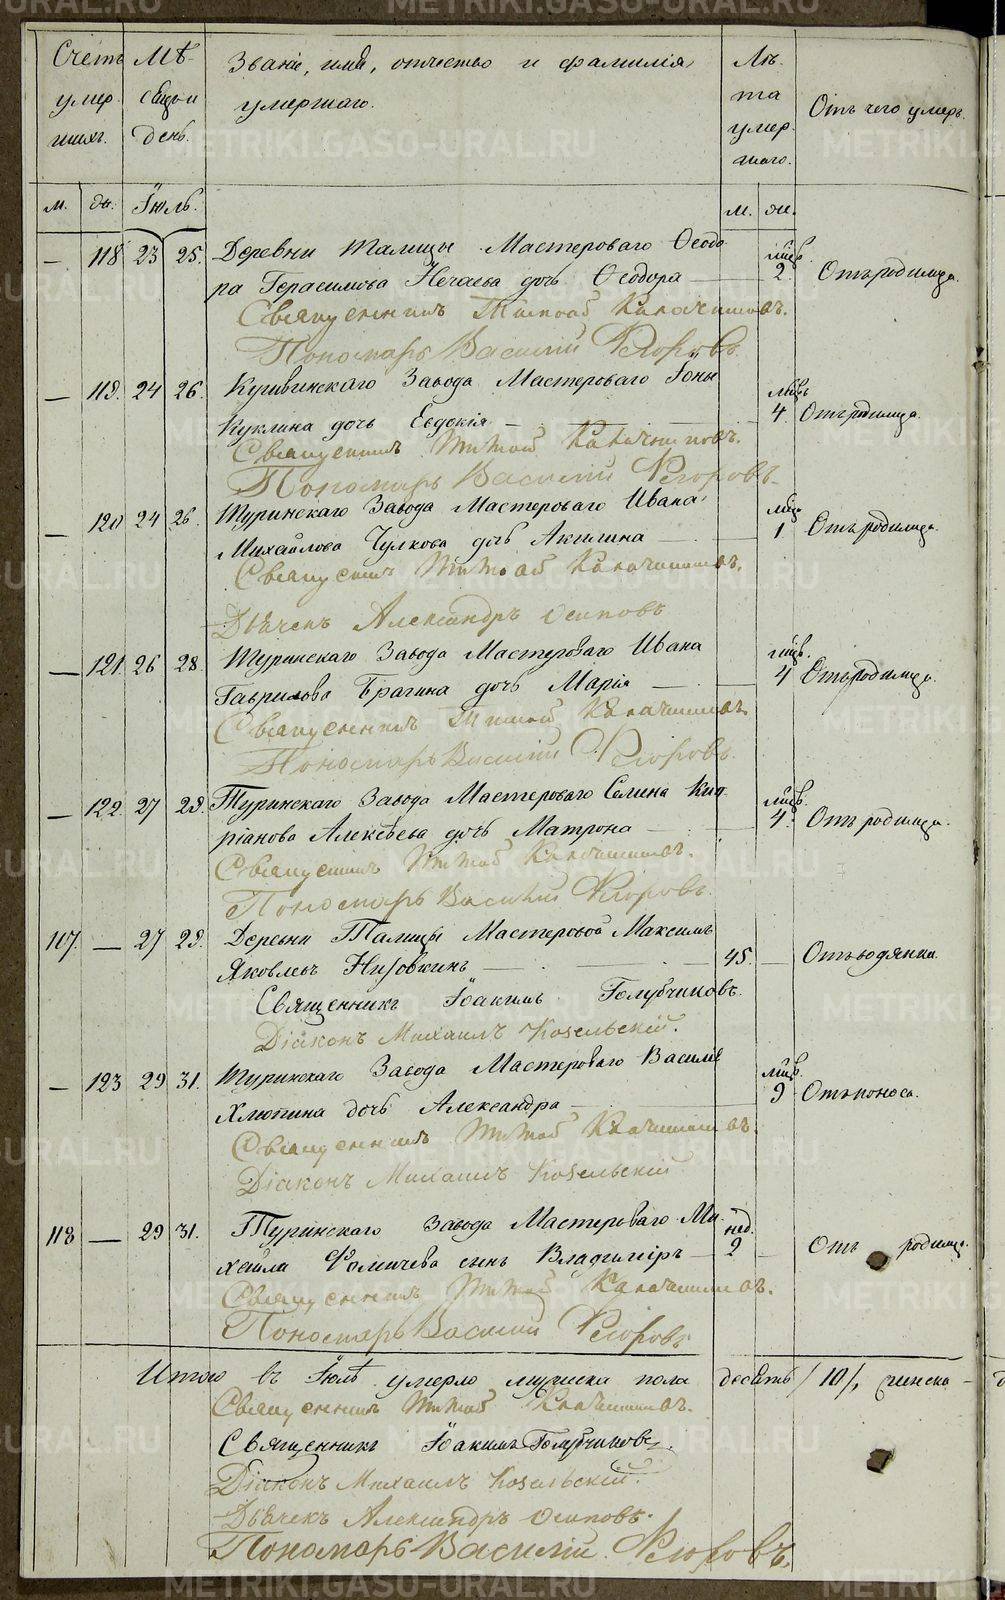 Счетъ умер шихъ.
Мѣ- сяцъ и день.
Званіе, имя, отчество и фамилія
умершаго.
Лѣ- та умер- шаго.
Отъ чего умеръ.
м. ж. Іюль. м. ж.
— 118 23 25. Деревни Талицы Мастероваго Ѳеодо-
мѣс. 2.
ра Герасимова Нечаева дочь Ѳеодора — Отъ родимца.
Священникъ Титъ Калачниковъ.
Пономарь Василій
— 119. 24 26. Кушвинскаго Завода Мастероваго Іоны
мѣс. 4
Куклина дочь Евдокія — Отъ родимца.
Священникъ Калачниковъ.
Пономарь Василій
— 120 24 26. Туринскаго Завода Мастероваго Ивана
мѣс. 1
Михайлова Чулкова дочь Акилина — Отъ родимца.
Священникъ Калачниковъ.
Дьячекъ Александръ Осиповъ
— 121. 26 28 Туринскаго Завода Мастероваго Ивана
мѣс. 4
Гаврилова Брагина дочь Марія — Отъ родимца.
Священникъ Калачниковъ.
Пономарь Василій
— 122 27 28. Туринскаго Завода Мастероваго Кип-
мѣс. 4.
ріанова Алексѣева дочь Матрона — Отъ родимца.
Священникъ Калачниковъ.
Пономарь Василій
107. — 27 28. Деревни Талицы Мастеровой Максимъ
Яковлевъ Низовкинъ — 45. — Отъ водянки.
Священникъ Іоакимъ Голубчиковъ.
Діаконъ Михаилъ Козельскій.
— 123 29 31. Туринскаго Завода Мастероваго Василія
мѣс. 9
Хлюпина дочь Александра — Отъ поноса.
Священникъ Калачниковъ.
Діаконъ Михаилъ Козельскій
118 — 29 31. Туринскаго Завода Мастероваго Ми-
нед. 2
хаила Фомичева сынъ Владиміръ — Отъ родимца.
Священникъ Калачниковъ.
Пономарь Василій
Итого въ Іюлѣ умерло мужеска пола десять /10/, женска —
Священникъ Калачниковъ.
Священникъ Іоакимъ Голубчиковъ.
Діаконъ Михаилъ Козельскій.
Дьячекъ Александръ Осиповъ.
Пономарь Василій
METRIKI.GASO-URAL.RU